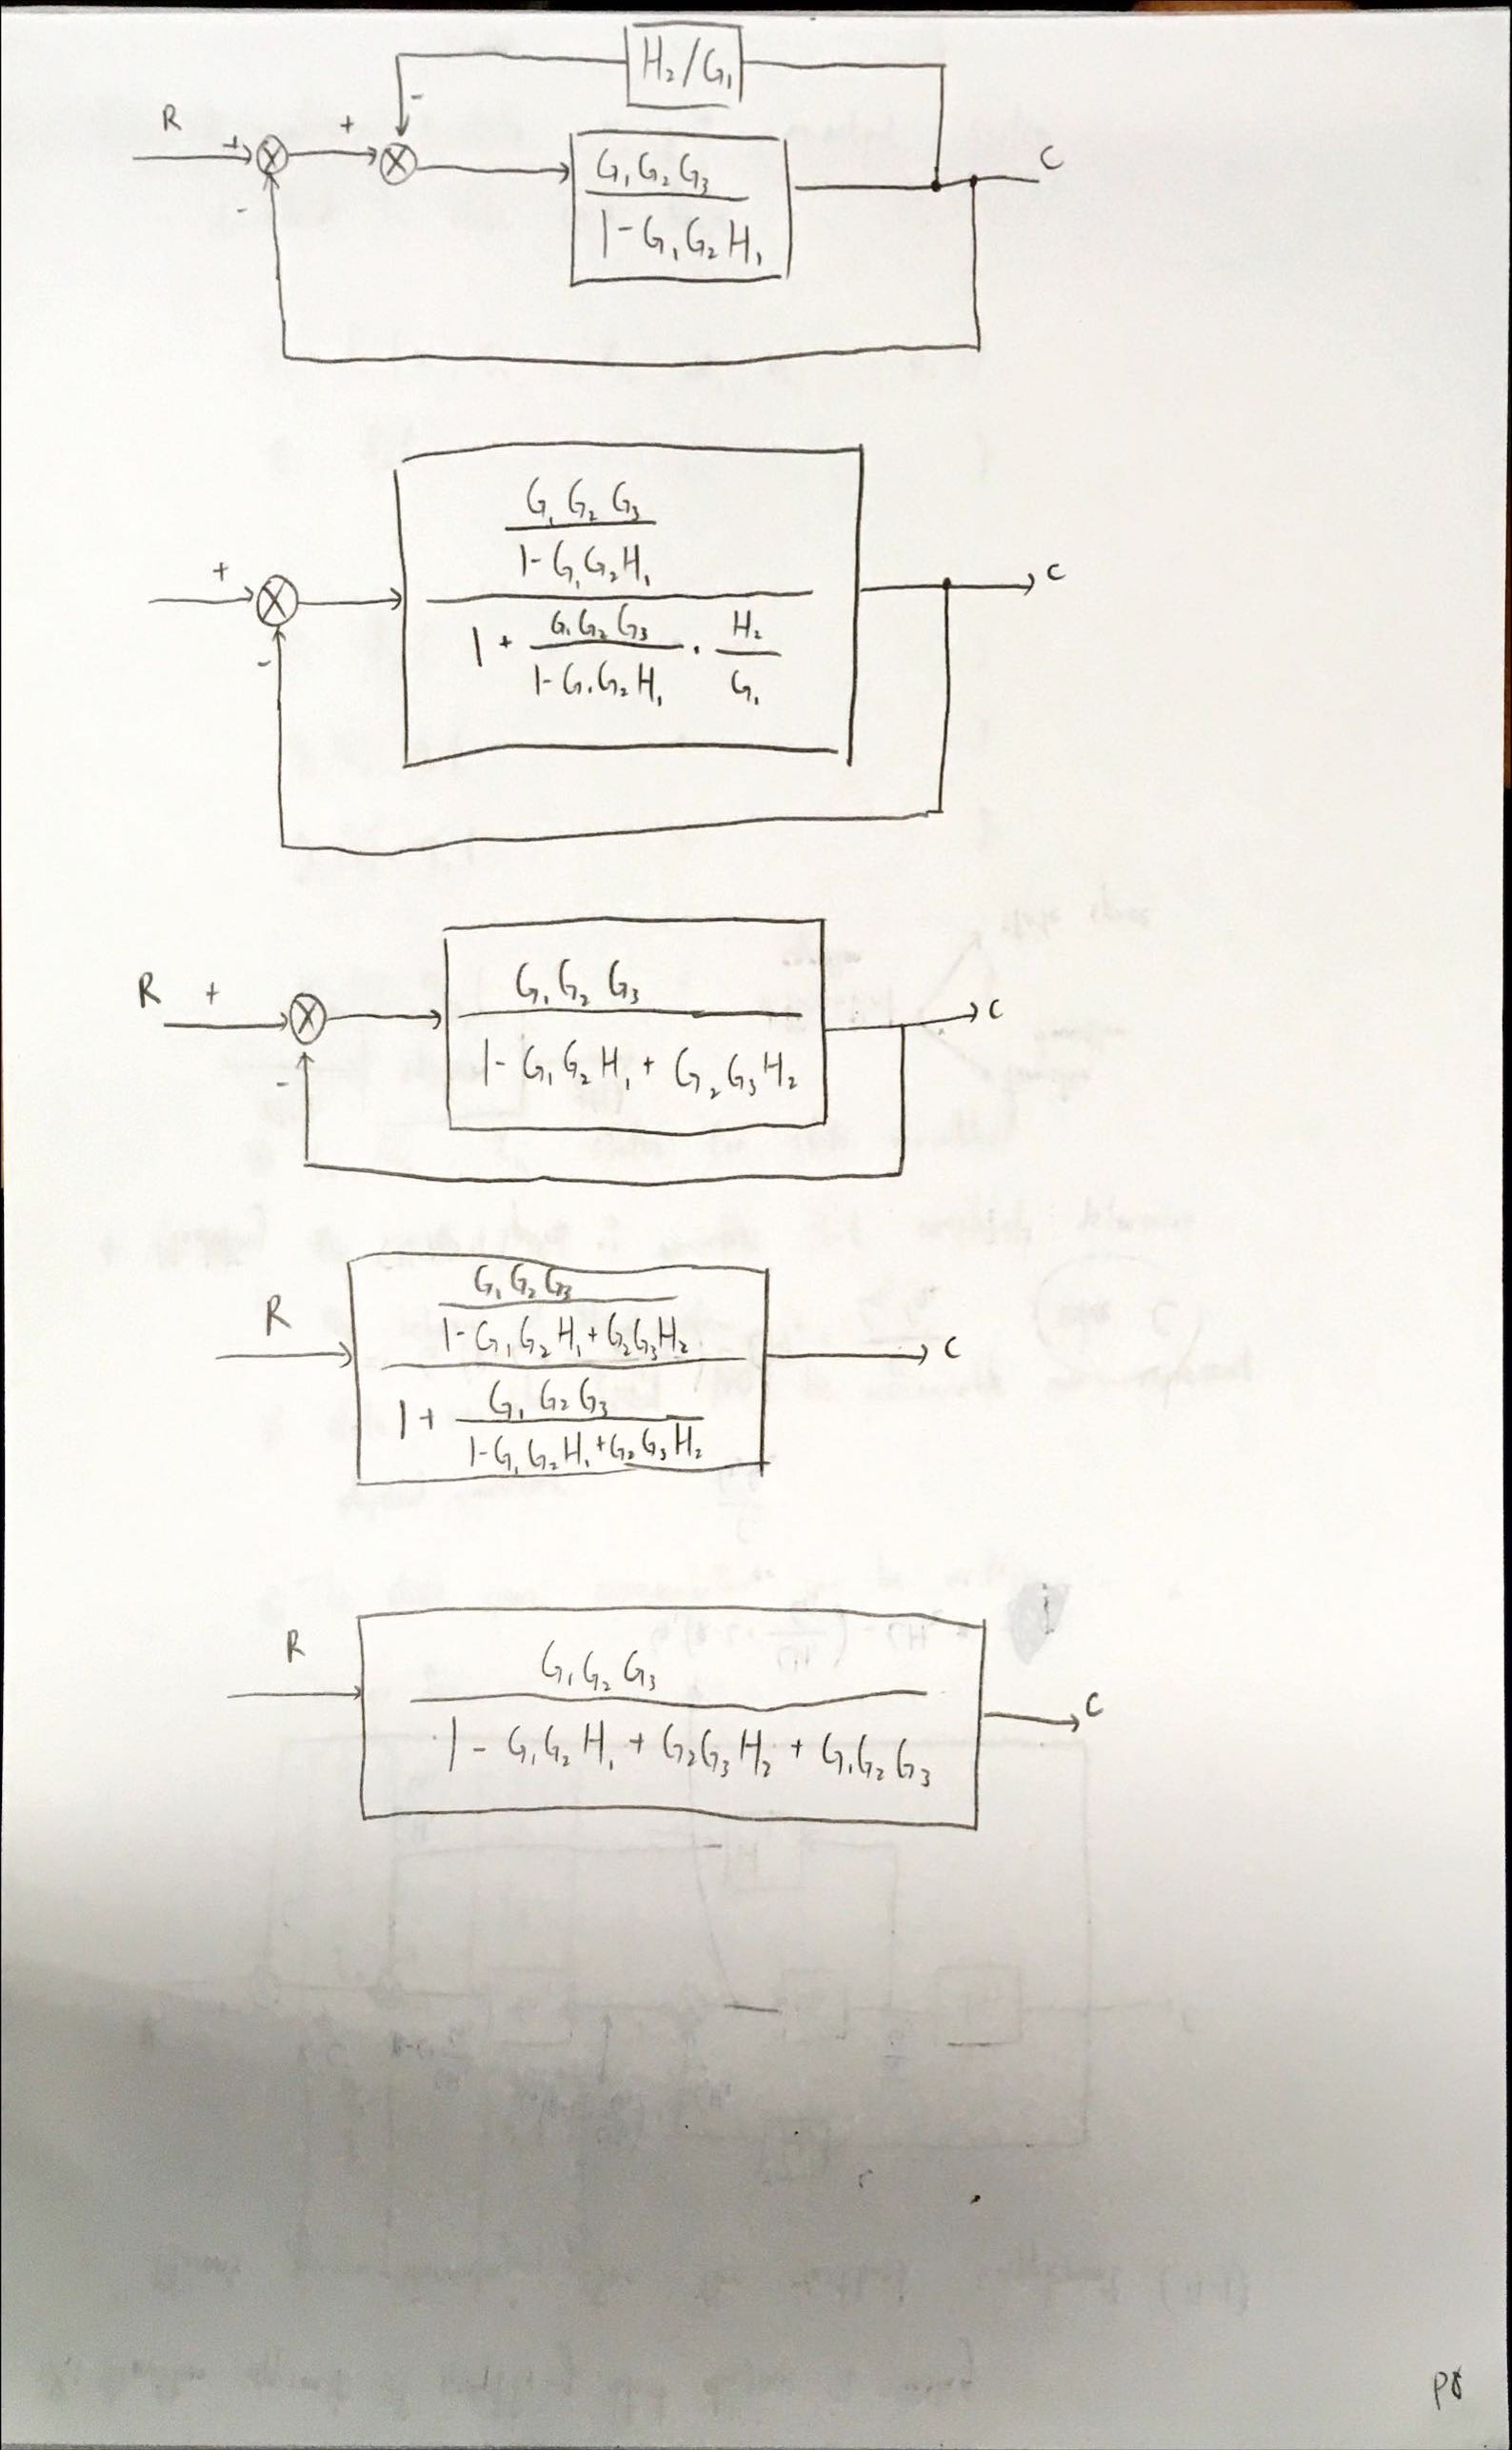 H₂/G₁
R + + - C
G₁G₂G₃
1-G₁G₂H₁
-
G₁G₂G₃
1-G₁G₂H₁
+ C
1 + G₁G₂G₃ . H₂
1-G₁G₂H₁ G₁
-
R + G₁G₂G₃ C
1-G₁G₂H₁ + G₂G₃H₂
-
G₁G₂G₃
R 1-G₁G₂H₁+G₂G₃H₂
C
1+ G₁G₂G₃
1-G₁G₂H₁+G₂G₃H₂
R G₁G₂G₃ C
1 - G₁G₂H₁ + G₂G₃H₂ + G₁G₂G₃